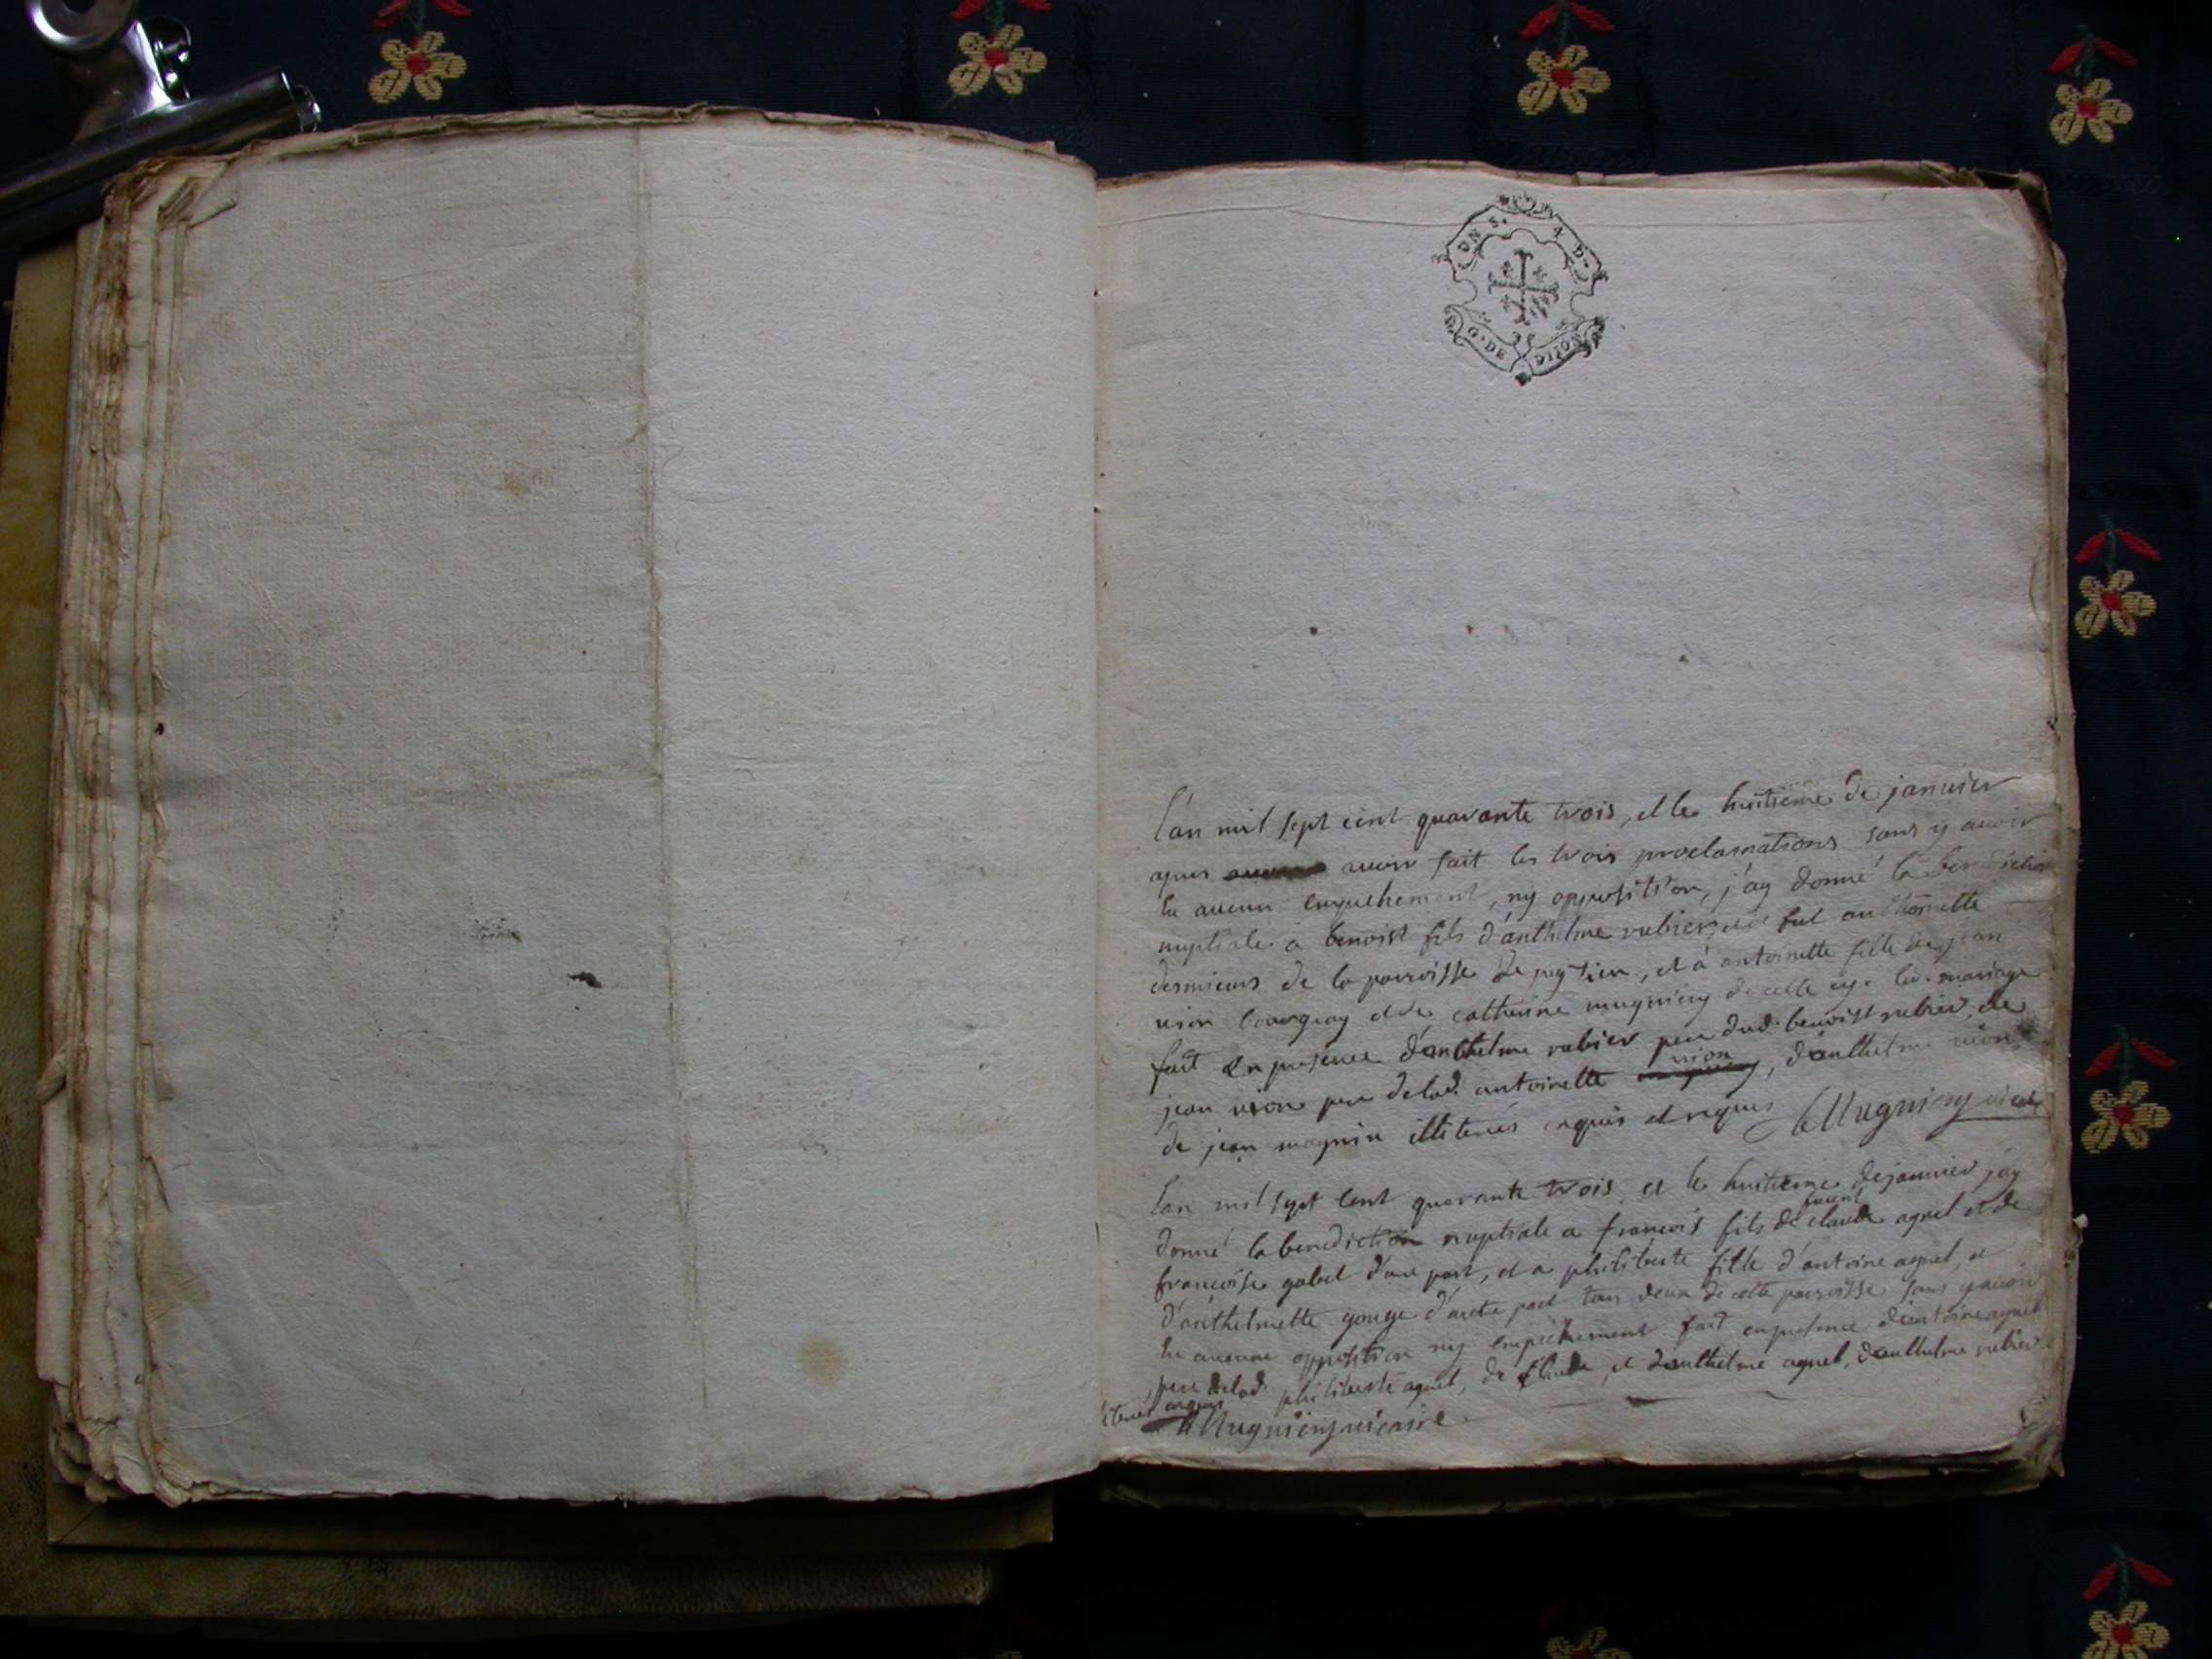 DN S. 4 D.
G. DE DIJON
l'an mil sept cent quarante trois, et le huitieme de janvier
apres avoir fait les trois proclamations sans y avoir
eu aucun empechement, ny opposition, j'ay donné la benediction
nuptiale a benoist fils d'anthelme rubier et de fut anthelmette
desmieurs de la parroisse de pugieu, et a antoinette fille de jean
vion et de catherine mugniery de cette cy. led. mariage
fait en presence d'anthelme rubier pere dud. benoist rubier, de
jean vion pere de lad. antoinette vion, d'anthelme vion
de jean magnin illiterés enquis et requis Mugniery vicaire
l'an mil sept cent quarante trois et le huitieme de janvier j'ay
donné la benediction nuptiale a francois fils de claude agnel et de
francoise gabet d'une part, et a philiberte fille d'antoine agnel, et
d'anthelmette gouge d'autre part tous deux de cette parroisse sans y avoir
eu aucune opposition ny empechement fait en presence d'antoine agnel
pere de lad. philiberte agnel, de claude, et d'anthelme agnel, d'anthelme rubier
enquis
Mugniery vicaire